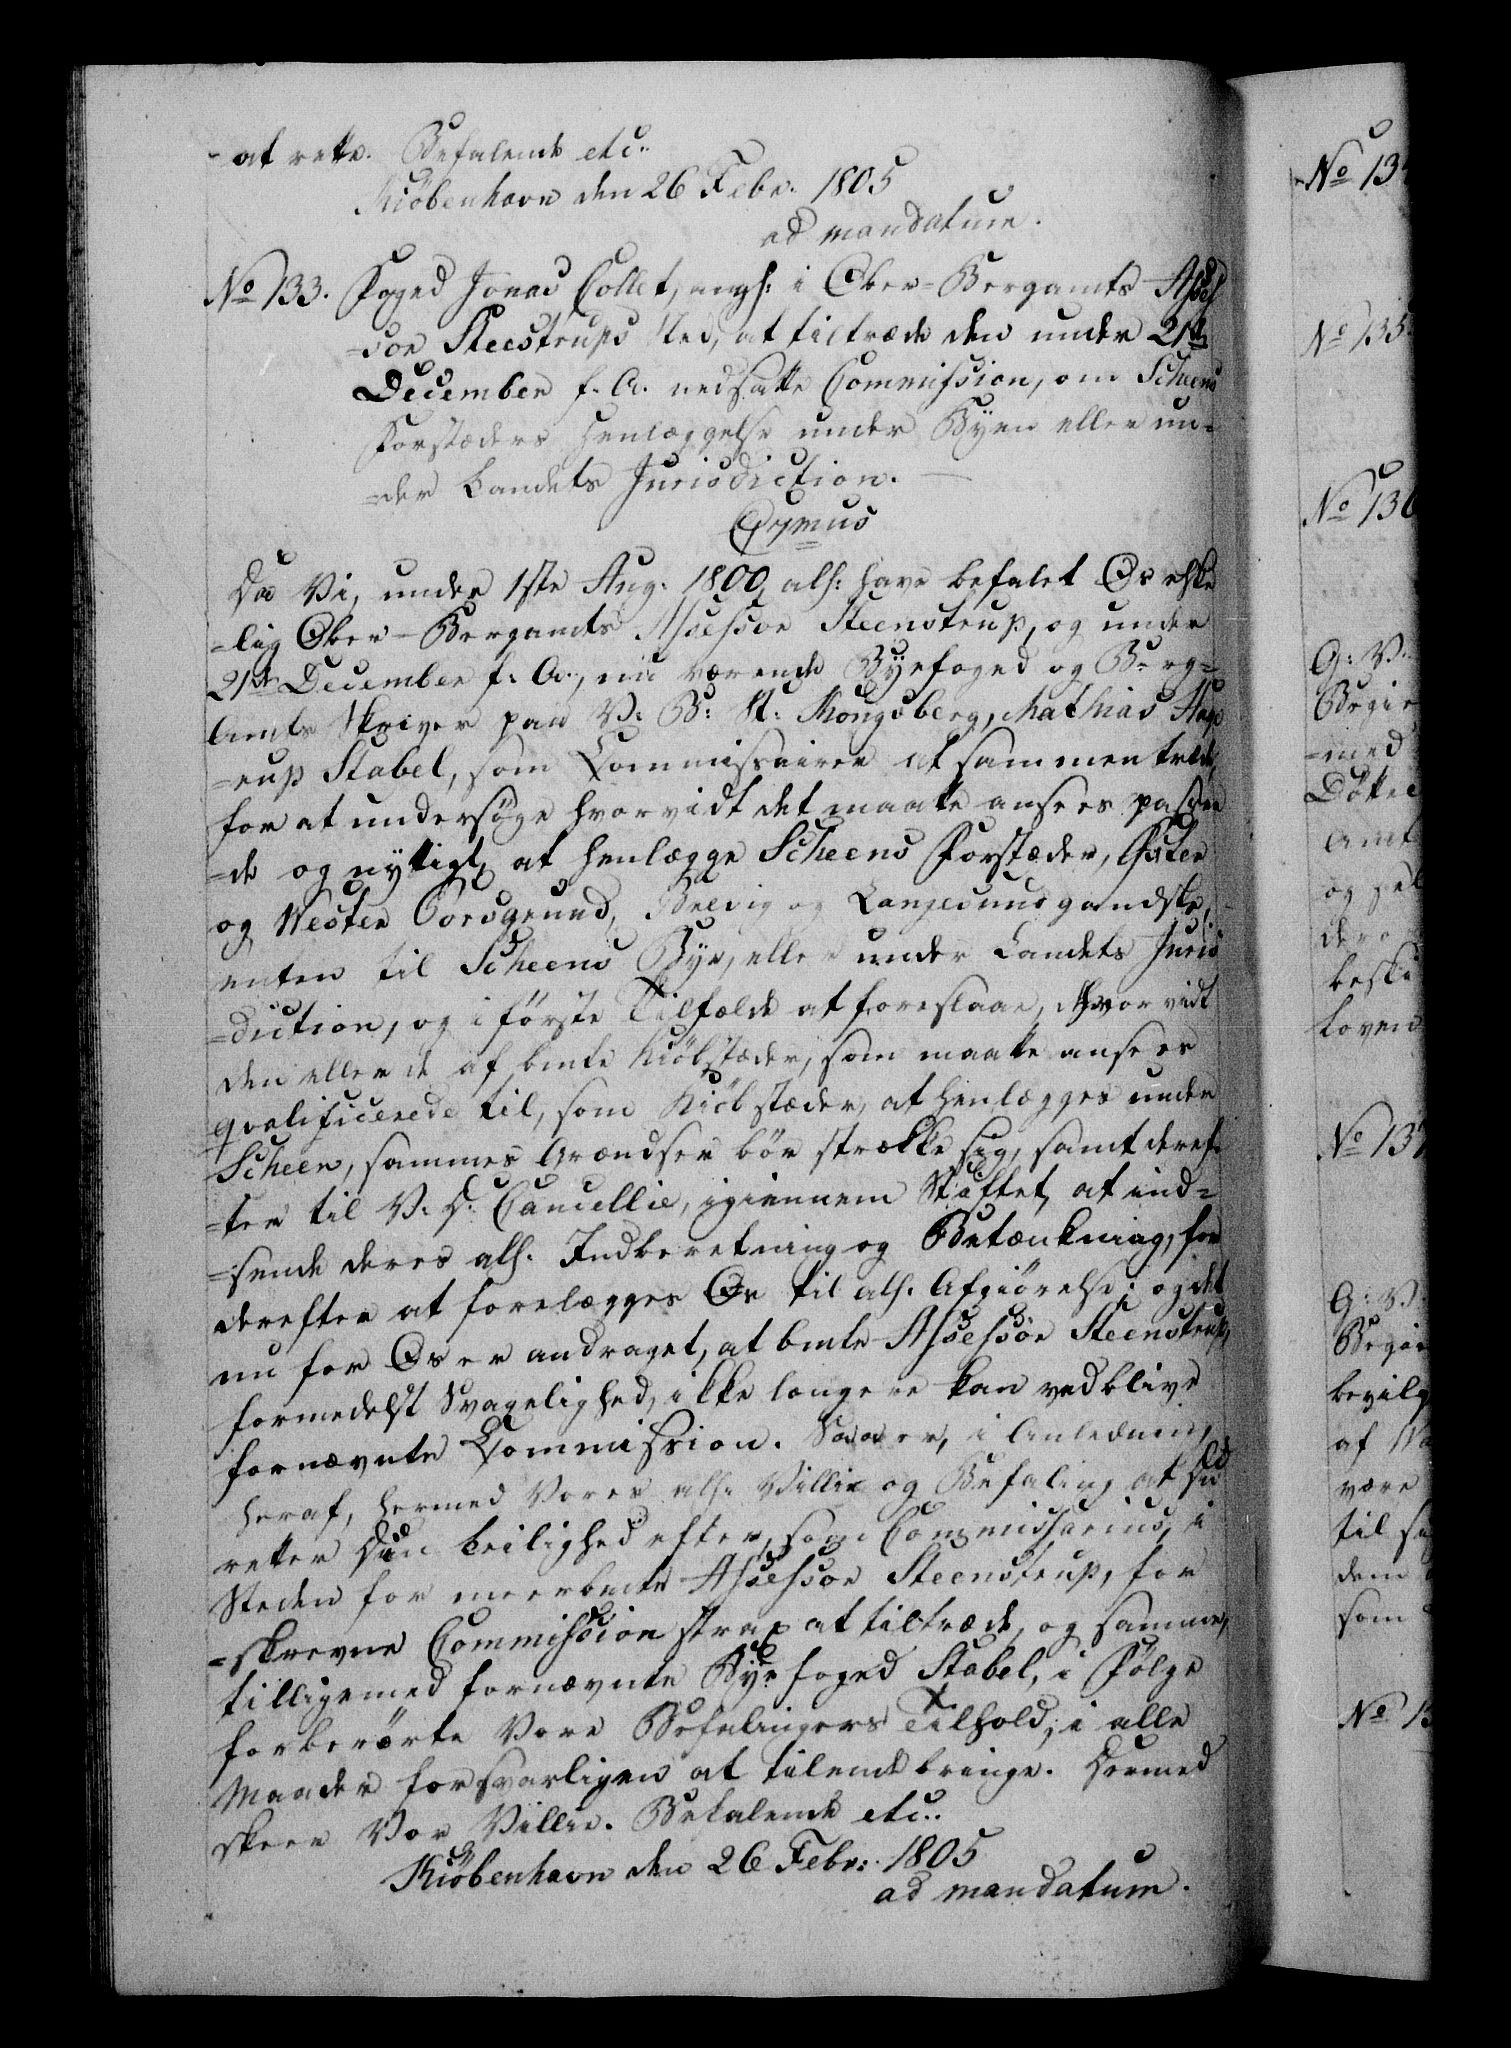 - at rette. Befalende etc..
Kiöbenhavn den 26 Febr. 1805
ad mandatum.
No 133. Foged Jonas Collet, angl: i Ober-Bergamts Asses
=sor Steenstrups Sted, at tiltræde den under 21de
December f. A. nedsatte Commission, om Scheens
Forstæders Henlæggelse under Byen eller un=
=der Landets Jurisdiction. —
C 7mus
Da Vi, under 1ste Aug. 1800, alh: have befalet Os elske
=lig Ober-Bergamts Assessor Steenstrup, og under
21de December f. A., nu værende Byefoged og Berg=
Amts Skriver paa V: B: St: Kongsberg, Mathias Hage
=rup Stabel, som Commissairer at sammentræde,
for at undersöge hvorvidt det maatte ansees passen
=de og nyttigt, at henlægge Scheens Forstæder, Öster
og Wester Porsgrund, Brevig og Langesund gandske,
enten til Scheens Bye, eller under Landets Juris
=diction, og i förste Tilfælde at foreslaae, hvor vidt
den eller de af bmte Kiöbstæder, som maatte ansees
qvalificerede til, som Kiöbstæder, at henlægges under
Scheen, sammes Grændser bör strække sig, samt deref=
=ter til V. D. Cancellie, igiennem Stiftet, at ind=
=sende deres alh. Indberetning og Betænkning, for
derefter at forelægges Os til alh. Afgiörelse; og det
nu for Os er andraget, at bmte Assessor Steenstrup,
formedelst Svagelighed, ikke længere kan vedblive
fornævnte Commission. Saa er, i Anledning
heraf, hermed Vores alh. Villie og Befaling at du
retter Din Leilighed efter, som Commissarius, i
Steden for meerbmte Assessor Steenstrup, for
=skrevne Commission strax at tiltræde, og samme,
tilligemed fornævnte Byefoged Stabel, i Fölge
forberörte Vore Befalingers Tilhold, i alle
Maader forsvarligen at tilendebringe. Dermed
skeer Vor Villie. Befalende etc..
Kiöbenhavn den 26 Febr: 1805
ad mandatum.
No 135
G: V.
Begie
=med
og
dero
No 137
G: V.
bevilg
af
være
til
dem
som